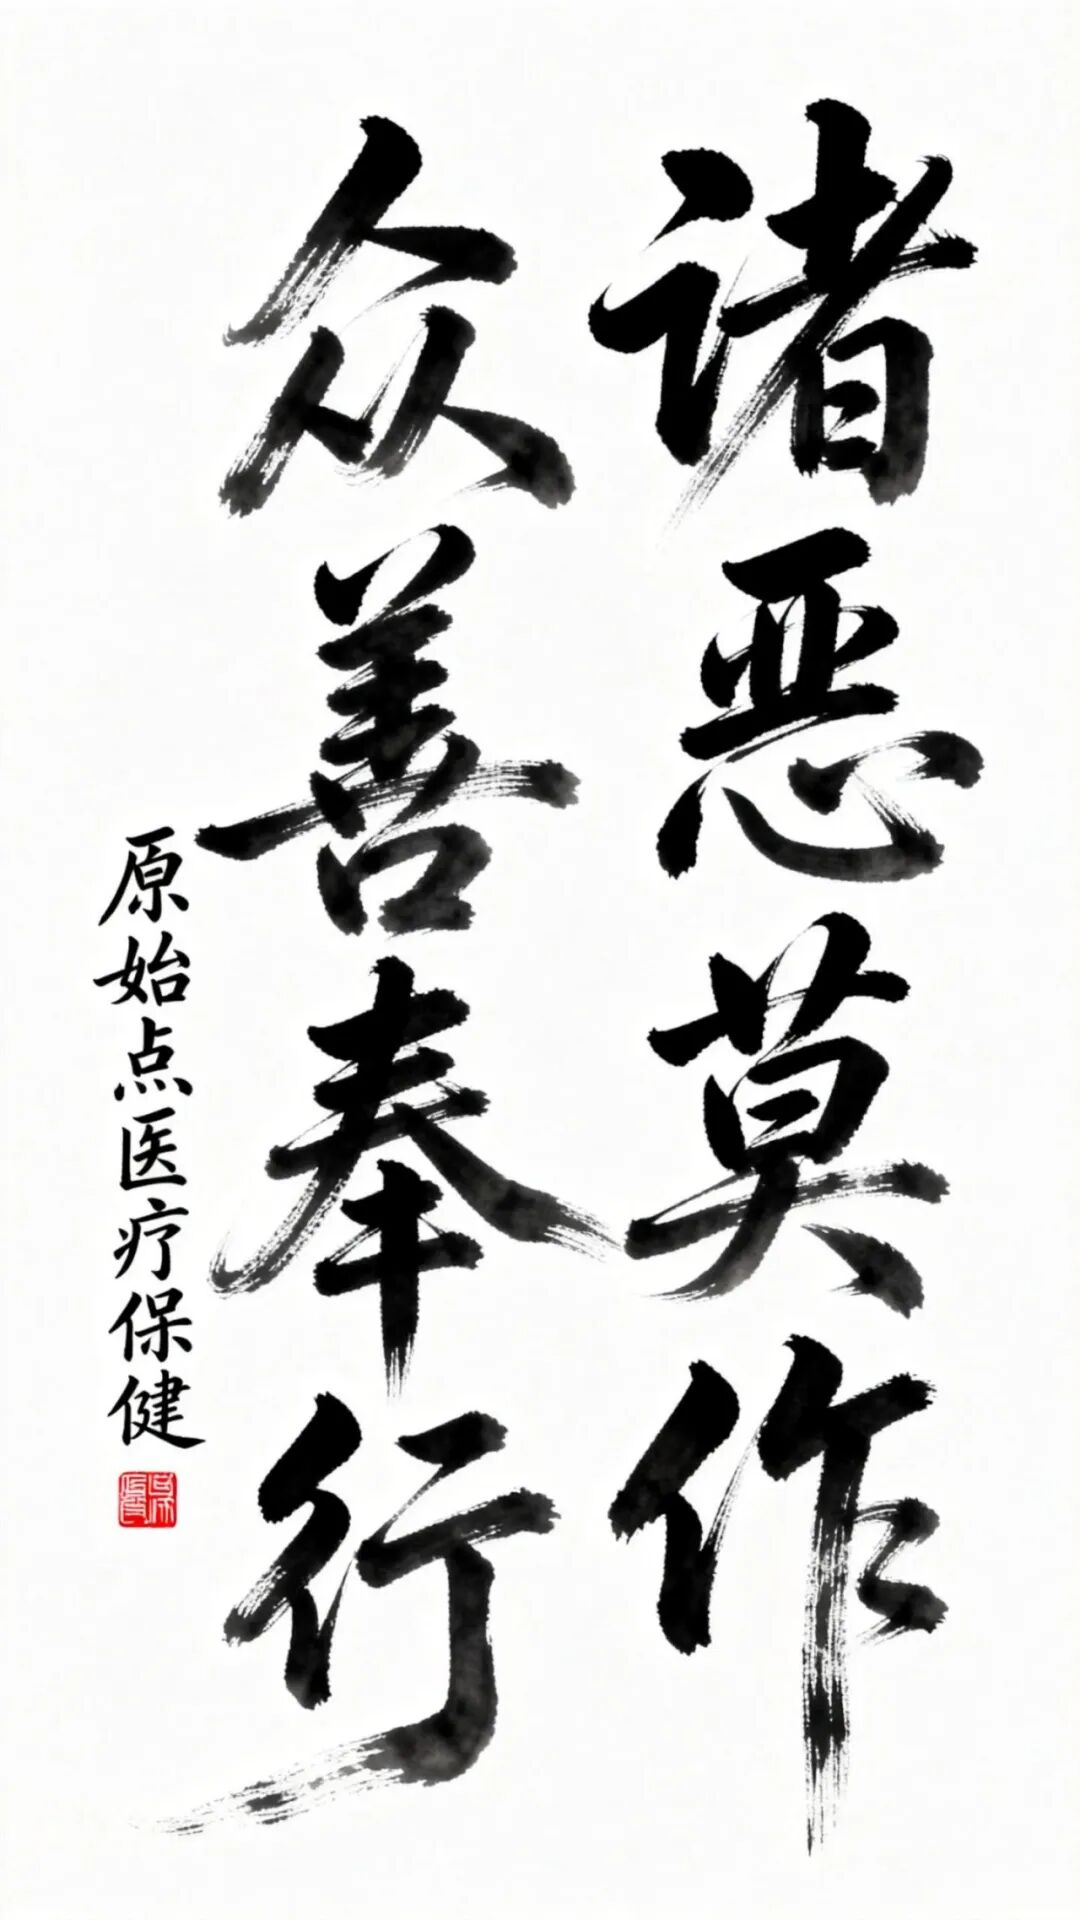 诸恶莫作
众善奉行
原始点医疗保健